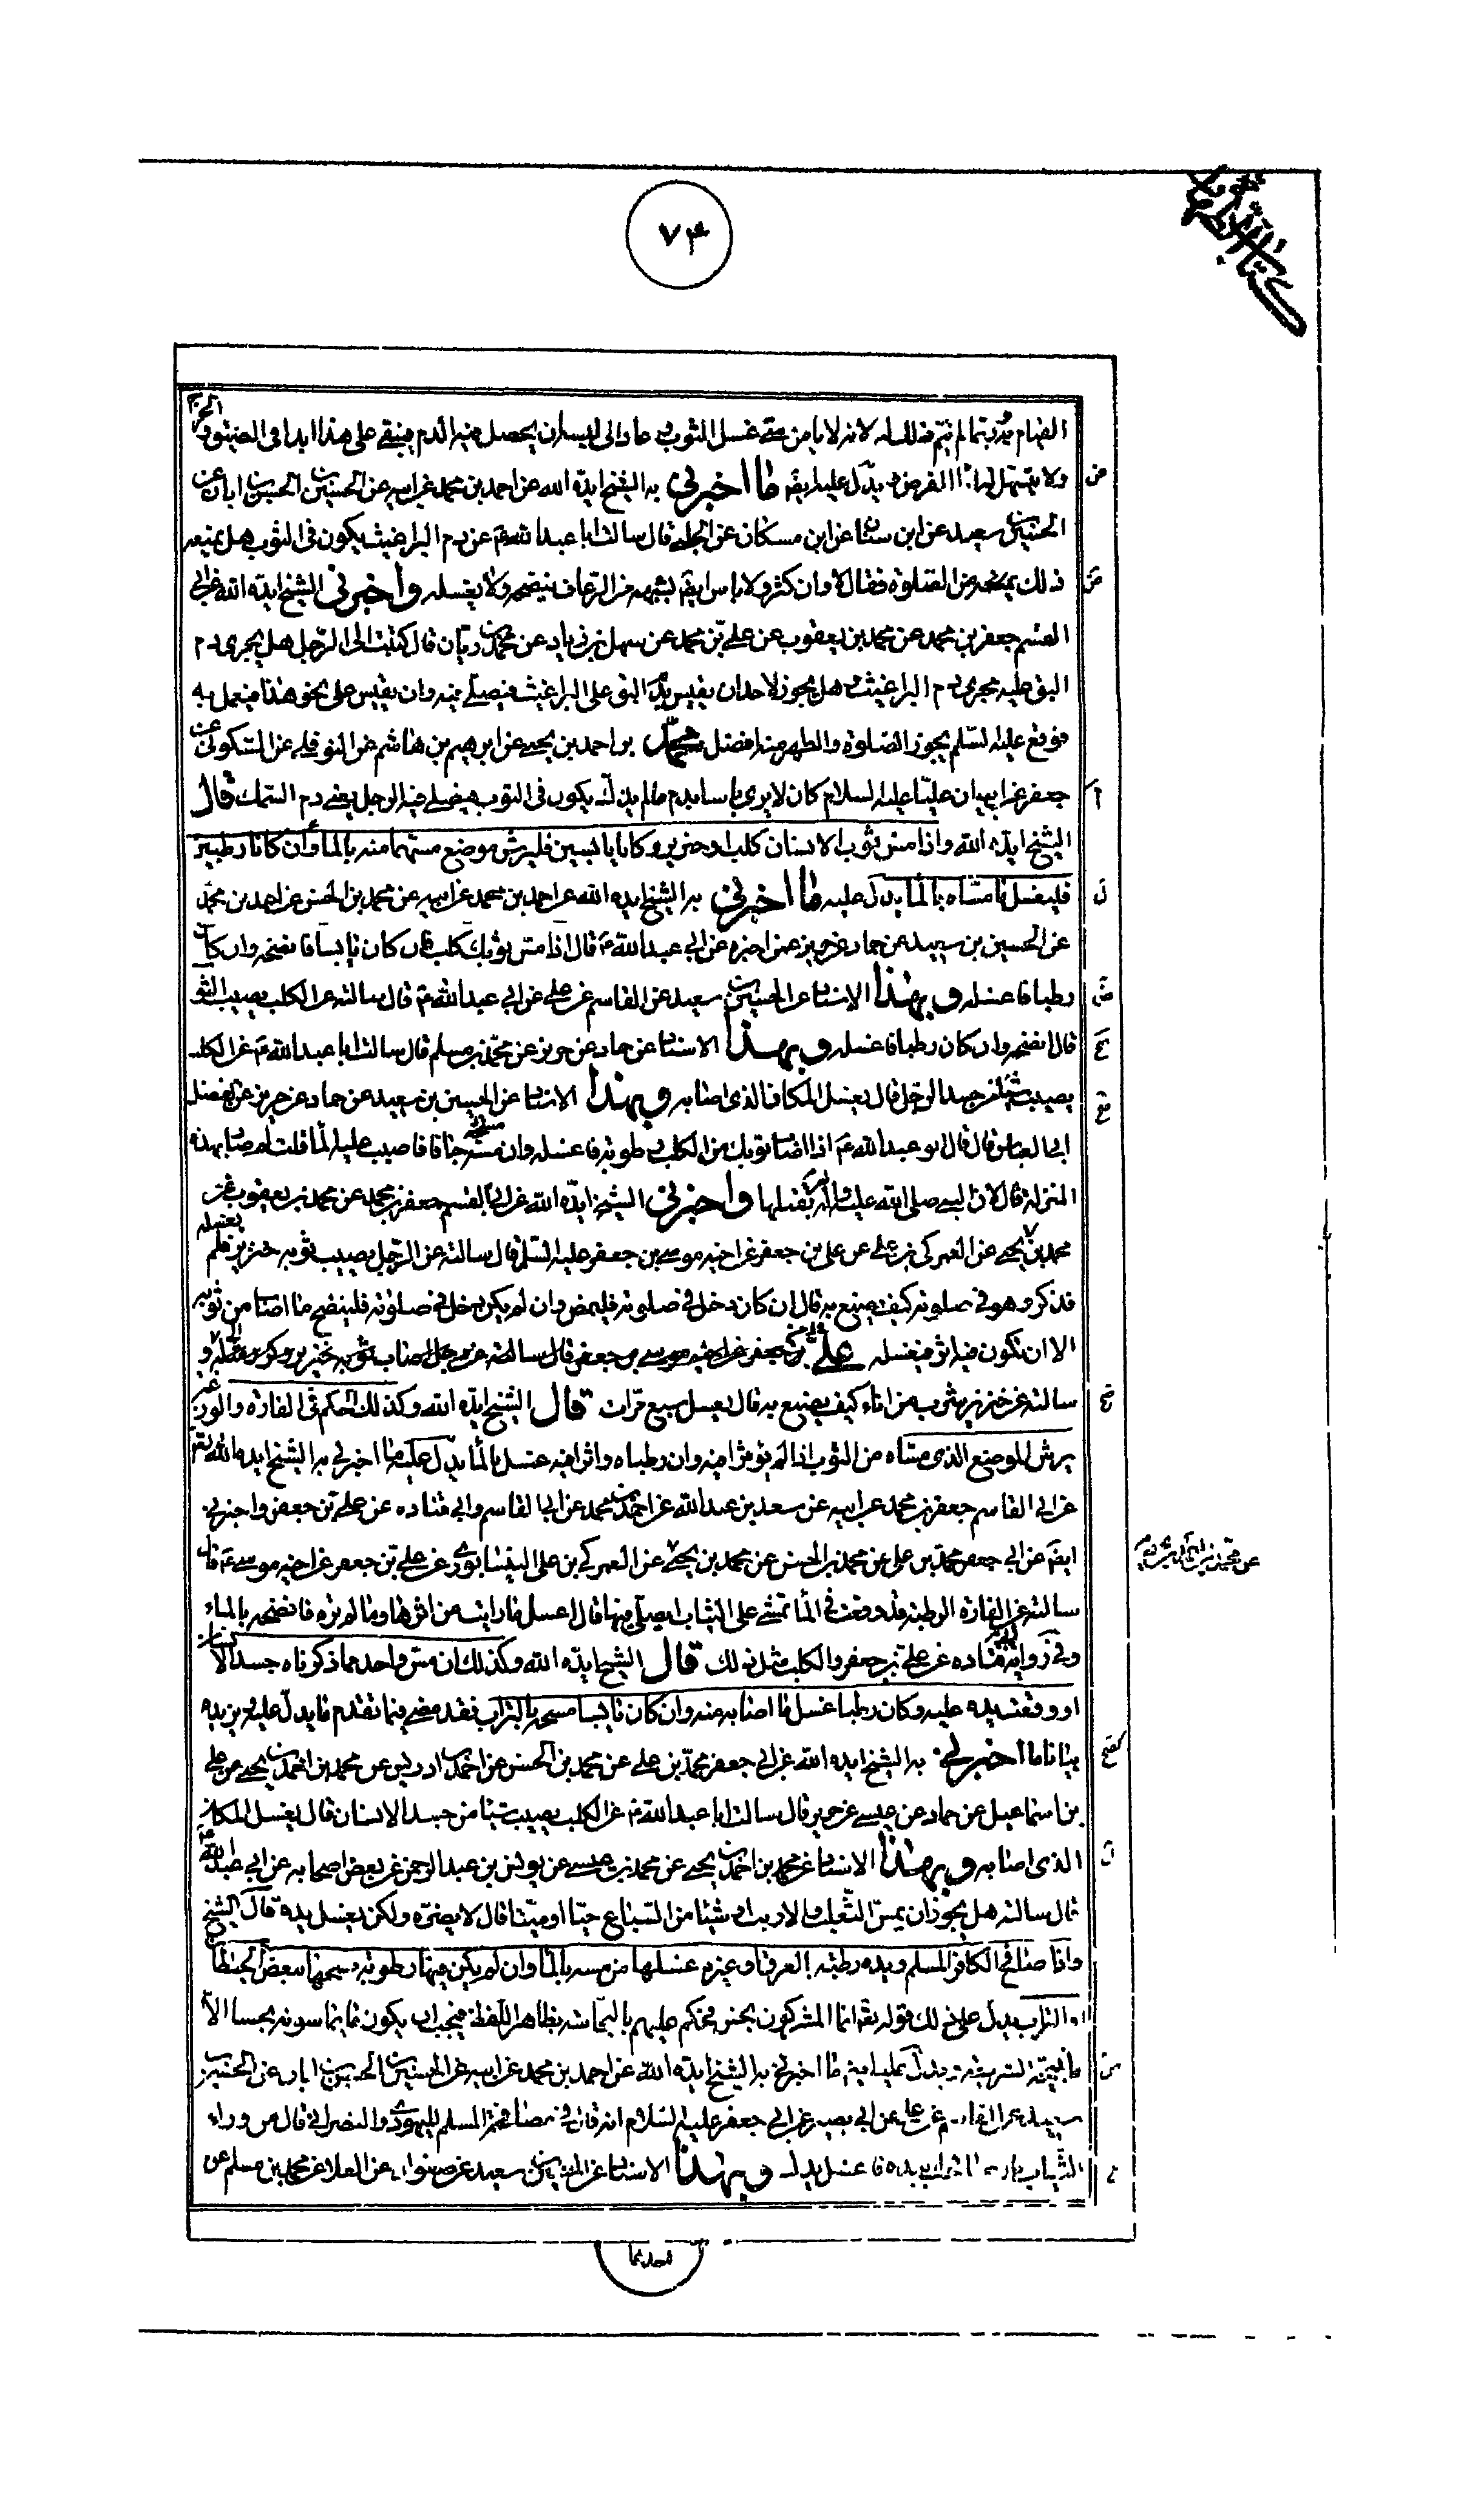 ٧۴
كتاب الطهارة
القيام وربما لم يتم ذلك له لانه لا يامن متى غسل الثوب عاد الى لبسه ان يحصل فيه الدم فيبقى على هذا ابدا في الضيق والحرج
ولا الفرض ويدل عليه ايضا ما اخبرني به الشيخ ايده الله عن احمد بن محمد عن ابيه عن الحسين بن الحسن بن ابان عن
الحسين بن سعيد عن ابن سنان عن ابن مسكان عن الحلبي قال سالت ابا عبد الله ع عن دم البراغيث يكون في الثوب هل يمنعه
ذلك من الصلوة فقال لا وان كثر ولا باس ايضا بشبهه من الرعاف ينضحه ولا يغسله واخبرني الشيخ ايده الله عن ابي
القسم جعفر بن محمد عن محمد بن يعقوب عن علي بن محمد عن سهل بن زياد عن محمد بن ريان قال كتبت الى الرجل هل يجرى دم
البق عليه مجرى دم البراغيث وهل يجوز لاحد ان يقيس بدم البق على البراغيث فيصلي فيه وان يقيس على نحو هذا فيعمل به
فوقع عليه السلم يجوز الصلوة والطهر منه افضل محمد بن احمد بن يحيى عن ابرهيم بن هاشم عن النوفلي عن السكوني عن
جعفر عن ابيه ان عليا عليه السلام كان لا يرى باسا بدم ما لم يذك يكون في الثوب فيصلي فيه الرجل يعني دم السمك قال
الشيخ ايده الله واذا مس ثوب الانسان كلب او خنزير وكانا يابسين فليرش موضع مسهما منه بالماء وان كانا رطبين
فليغسل ما مساه بالماء يدل عليه ما اخبرني به الشيخ ايده الله عن احمد بن محمد عن ابيه عن محمد بن الحسن عن احمد بن محمد
عن الحسين بن سعيد عن حماد عن حريز عمن اخبره عن ابي عبد الله ع قال اذا مس ثوبك كلب فان كان يابسا فانضحه وان كان
رطبا فاغسله وبهذا الاسناد عن الحسين بن سعيد عن القاسم عن علي عن ابي عبد الله ع قال سالته عن الكلب يصيب الثوب
قال انضحه وان كان رطبا فاغسله وبهذا الاسناد عن حماد عن حريز عن محمد بن مسلم قال سالت ابا عبد الله ع عن الكلب
يصيب شيئا من جسد الرجل قال يغسل المكان الذي اصابه وبهذا الاسناد عن الحسين بن سعيد عن حماد عن حريز عن الفضل
ابي العباس قال قال ابو عبد الله ع اذا اصاب ثوبك من الكلب رطوبة فاغسله وان مسه جافا فاصبب عليه الماء قلت لم صار بهذه
المنزلة قال لان النبي صلى الله عليه واله امر بقتلها واخبرني الشيخ ايده الله عن ابي القسم جعفر بن محمد عن محمد بن يعقوب عن
محمد بن يحيى عن العمركي بن علي عن علي بن جعفر عن اخيه موسى بن جعفر عليه السلم قال سالته عن الرجل يصيب ثوبه خنزير فلم يغسله
فذكر وهو في صلوته كيف يصنع به قال ان كان دخل في صلوته فليمض وان لم يكن دخل في صلوته فلينضح ما اصاب من ثوبه
الا ان تكون فيه اثر فيغسله علي بن جعفر عن اخيه موسى بن جعفر قال سالته عن رجل اصاب ثوبه خنزير
سالته عن خنزير شرب من اناء كيف يصنع به قال يغسل سبع مرات قال الشيخ ايده الله وكذلك الحكم في الفارة والوزغة
يرش الموضع الذي مساه من الثوب اذا لم يؤثرا فيه وان رطباه واثرا فيه غسل بالماء يدل عليه ما اخبرني به الشيخ ايده الله تعالى
عن ابي القاسم جعفر بن محمد عن ابيه عن سعد بن عبد الله عن احمد بن محمد عن ابي القاسم وابي قتاده عن علي بن جعفر واخبرني
ايضا عن ابي جعفر محمد بن علي عن محمد بن الحسن عن محمد بن يحيى عن العمركي بن علي النيشابوري عن علي بن جعفر عن اخيه موسى ع قال
سالته عن الفارة الرطبة قد وقعت في الماء تمشي على الثياب ايصلى فيها قال اغسل ما رايت من اثرها وما لم تره فانضحه بالماء
وفي رواية ابي قتاده عن علي بن جعفر والكلب مثل ذلك قال الشيخ ايده الله وكذلك ان مس واحد مما ذكرناه جسد الانسان
او وقعت يده عليه وكان رطبا غسل ما اصابه منه وان كان يابسا مسحه بالتراب فقد مضى فيما تقدم ما يدل عليه ويزيده
بيانا ما اخبرني به الشيخ ايده الله عن ابي جعفر محمد بن علي عن محمد بن الحسن عن احمد بن ادريس عن محمد بن احمد بن يحيى عن علي
بن اسماعيل عن حماد بن عيسى عن حريز قال سالت ابا عبد الله ع عن الكلب يصيب شيئا من جسد الانسان قال يغسل المكان
الذي اصابه وبهذا الاسناد عن محمد بن احمد بن يحيى عن محمد بن عيسى عن يونس بن عبد الرحمن عن بعض اصحابه عن ابي عبد الله ع
قال سالته هل يجوز ان يمس الثعلب والارنب او شيئا من السباع حيا او ميتا قال لا يضره ولكن يغسل يده قال الشيخ
واذا صافح الكافر المسلم ويده رطبة بالعرق او غيره غسلها من مسه بالماء وان لم يكن فيها رطوبة مسحها ببعض الحيطان
او التراب يدل على ذلك قوله تعالى انما المشركون نجس فحكم عليهم بالنجاسة بظاهر اللفظ فيجب ان يكون ما يماسونه نجسا الا
ما تبيحه الشريعة ويدل عليه ايضا ما اخبرني به الشيخ ايده الله عن احمد بن محمد عن ابيه عن الحسين بن الحسن بن ابان عن الحسين بن
سعيد عن القاسم عن علي عن ابي بصير عن ابي جعفر عليه السلام انه قال في مصافحة المسلم لليهودي والنصراني قال من وراء
الثياب فان صافحك بيده فاغسل يدك وبهذا الاسناد عن الحسين بن سعيد عن صفوان عن العلا عن محمد بن مسلم عن
احدهما